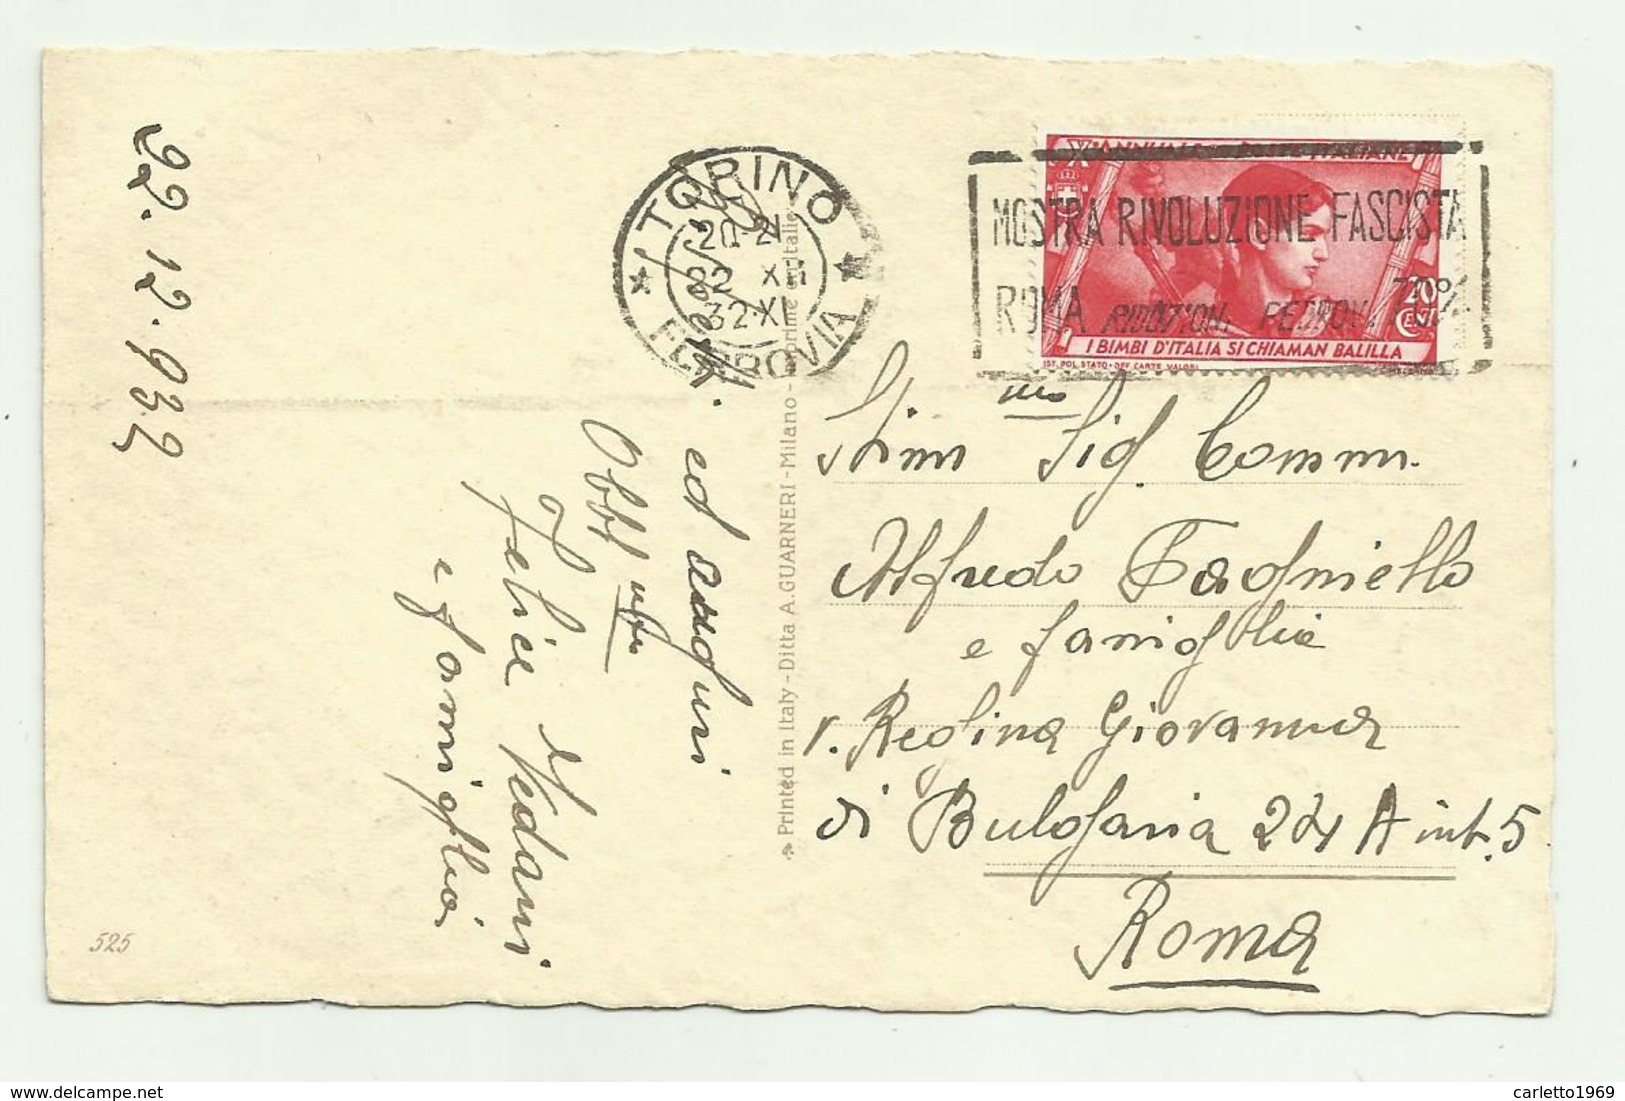 22.12.932
ed auguri
Obbl
Felice Vedani
e famiglia
525
Printed in Italy - Ditta A. GUARNERI - Milano -
TORINO
20-21
22 XII
32·XI
FERROVIA
X° ANNUALE POSTE ITALIANE
MOSTRA RIVOLUZIONE FASCISTA
ROMA RIDUZION. FERROV. 70%
20 CENT
I BIMBI D'ITALIA SI CHIAMAN BALILLA
IST. POL. STATO - OFF. CARTE VALORI
Stim mo Sig. Comm.
Alfredo Fagniello
e famiglia
v. Regina Giovanna
di Bulgaria A int. 5
Roma
carletto1969
delcampe.net